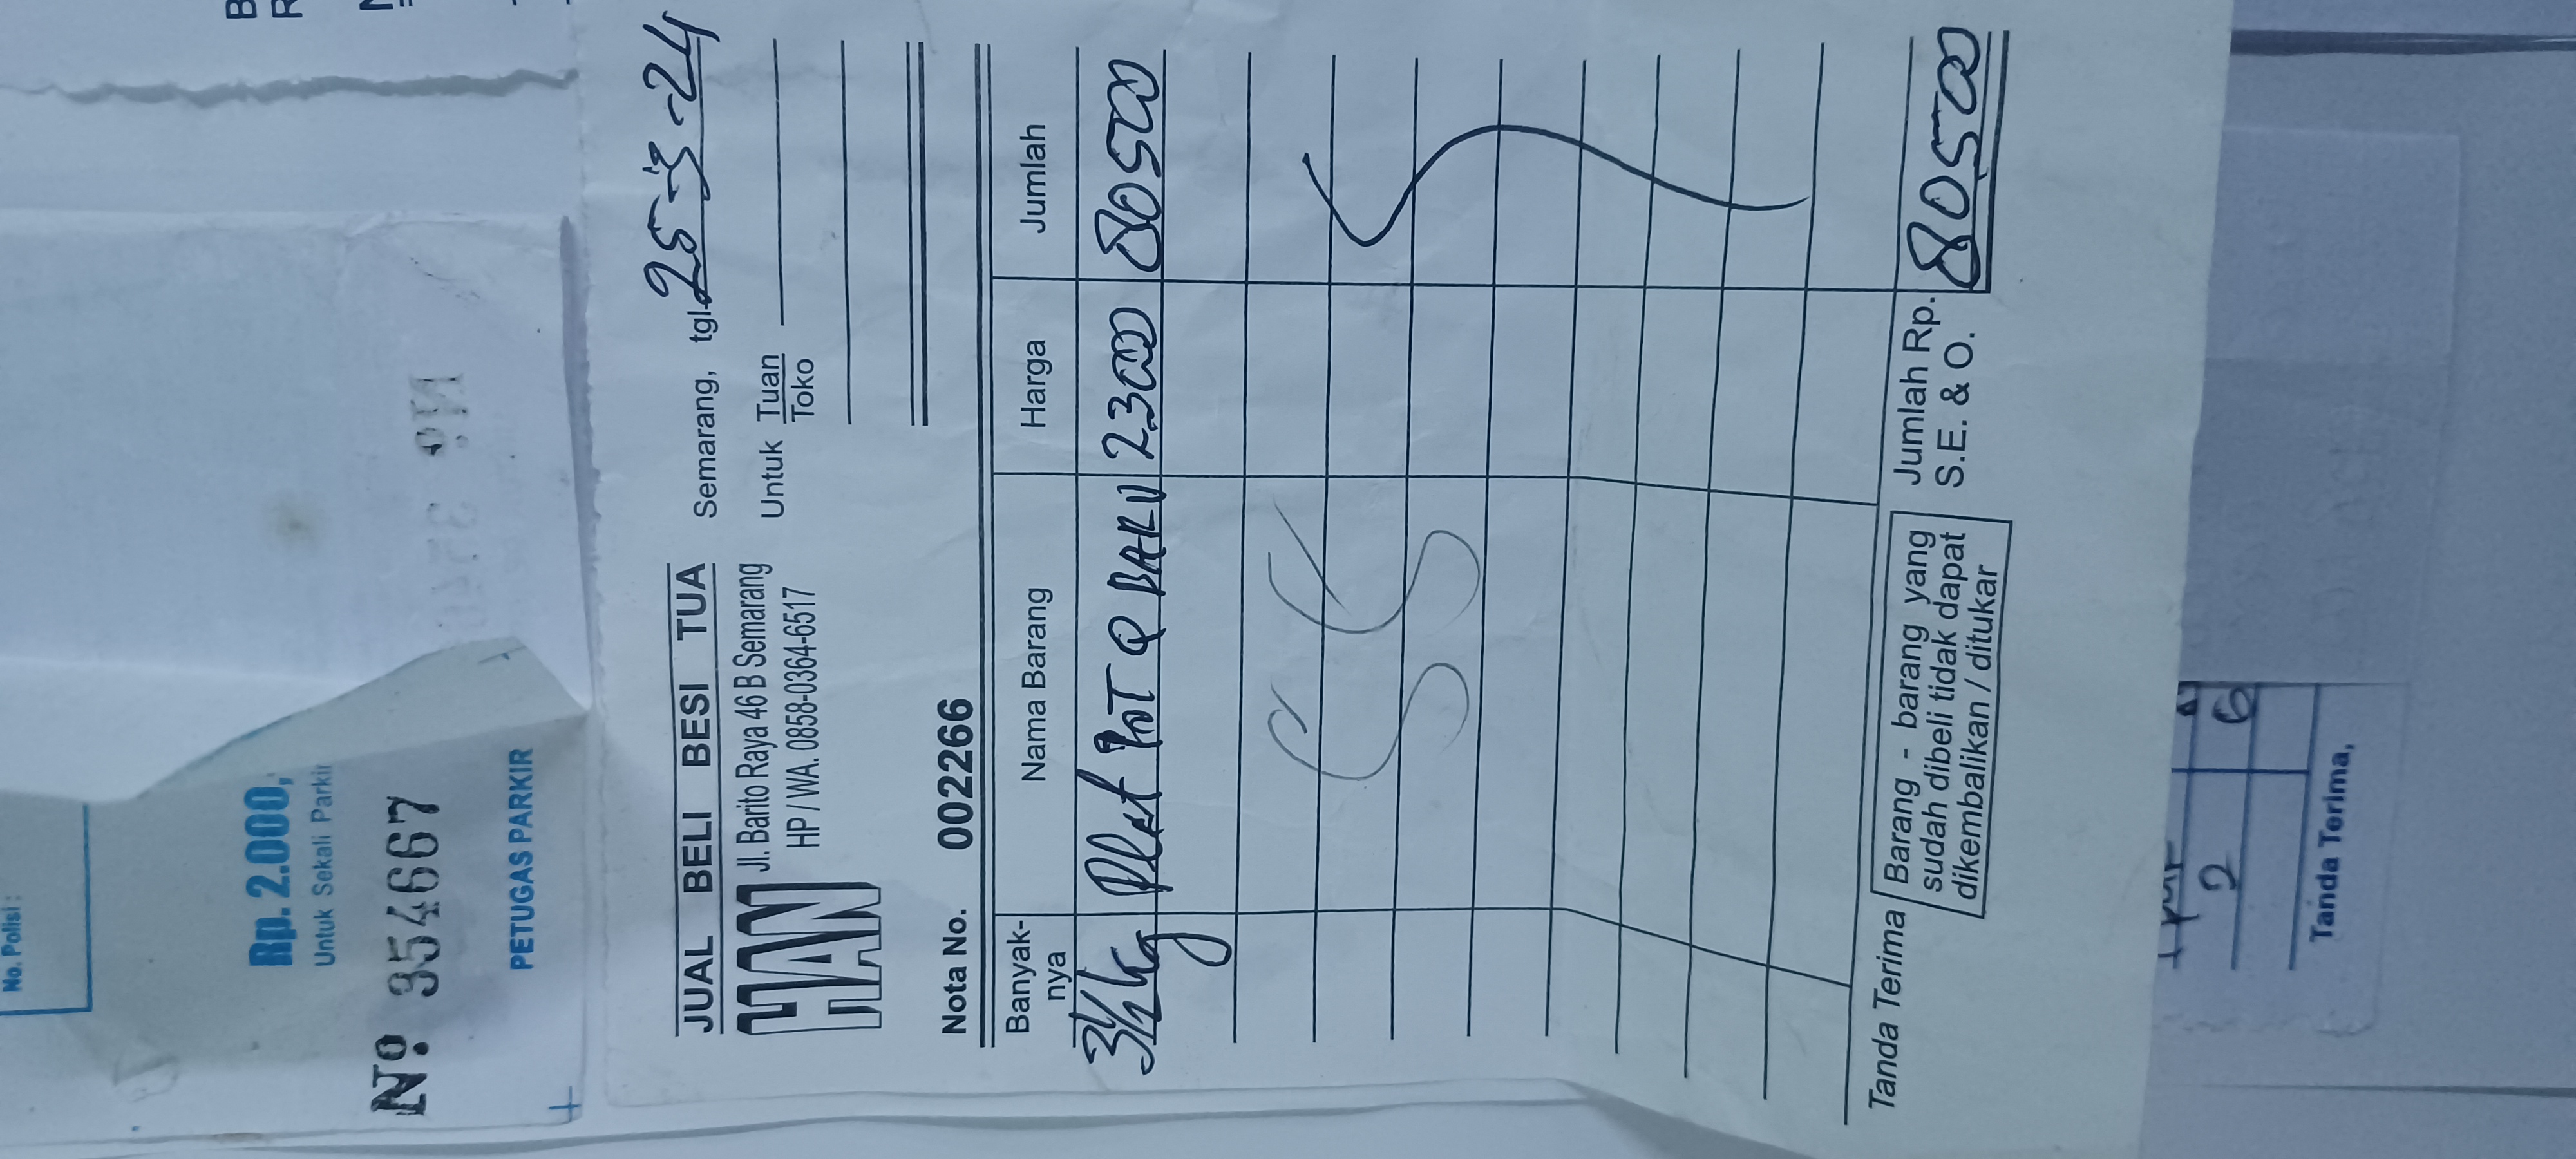 No. Polisi :
Rp. 2.000,
Untuk Sekali Parkir
Nº 354667
PETUGAS PARKIR
JUAL BELI BESI TUA
HAN
Jl. Barito Raya 46 B Semarang
HP / WA. 0858-0364-6517
Semarang, tgl. 25-3-24
Untuk Tuan
Toko
Nota No. 002266
Banyak-nya Nama Barang Harga Jumlah
3½ kg Plat POT @ BARU 23000 80500
Tanda Terima
Barang - barang yang
sudah dibeli tidak dapat
dikembalikan / ditukar
Jumlah Rp. 80500
S.E. & O.
2 6
Tanda Terima,